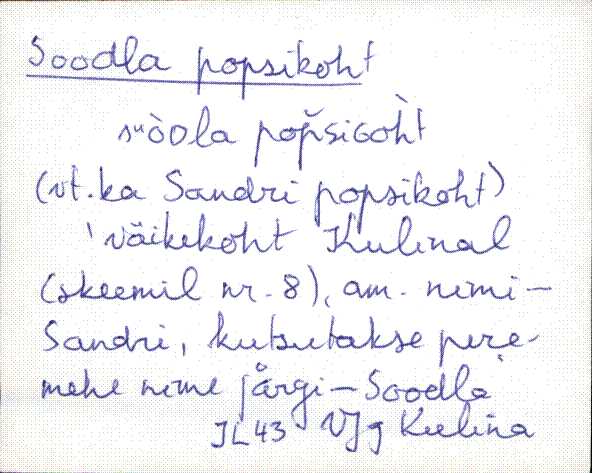 Soodla popsikoht
sᵘòDla poṕšiGoh̀t
(vt. ka Sandri popsikoht)
'väikekoht Kulinal
(skeemil nr. 8), am. nimi-
Sandri, kutsutakse pere-
mehe nime järgi - Soodla'
JL 43 VJg Kulina